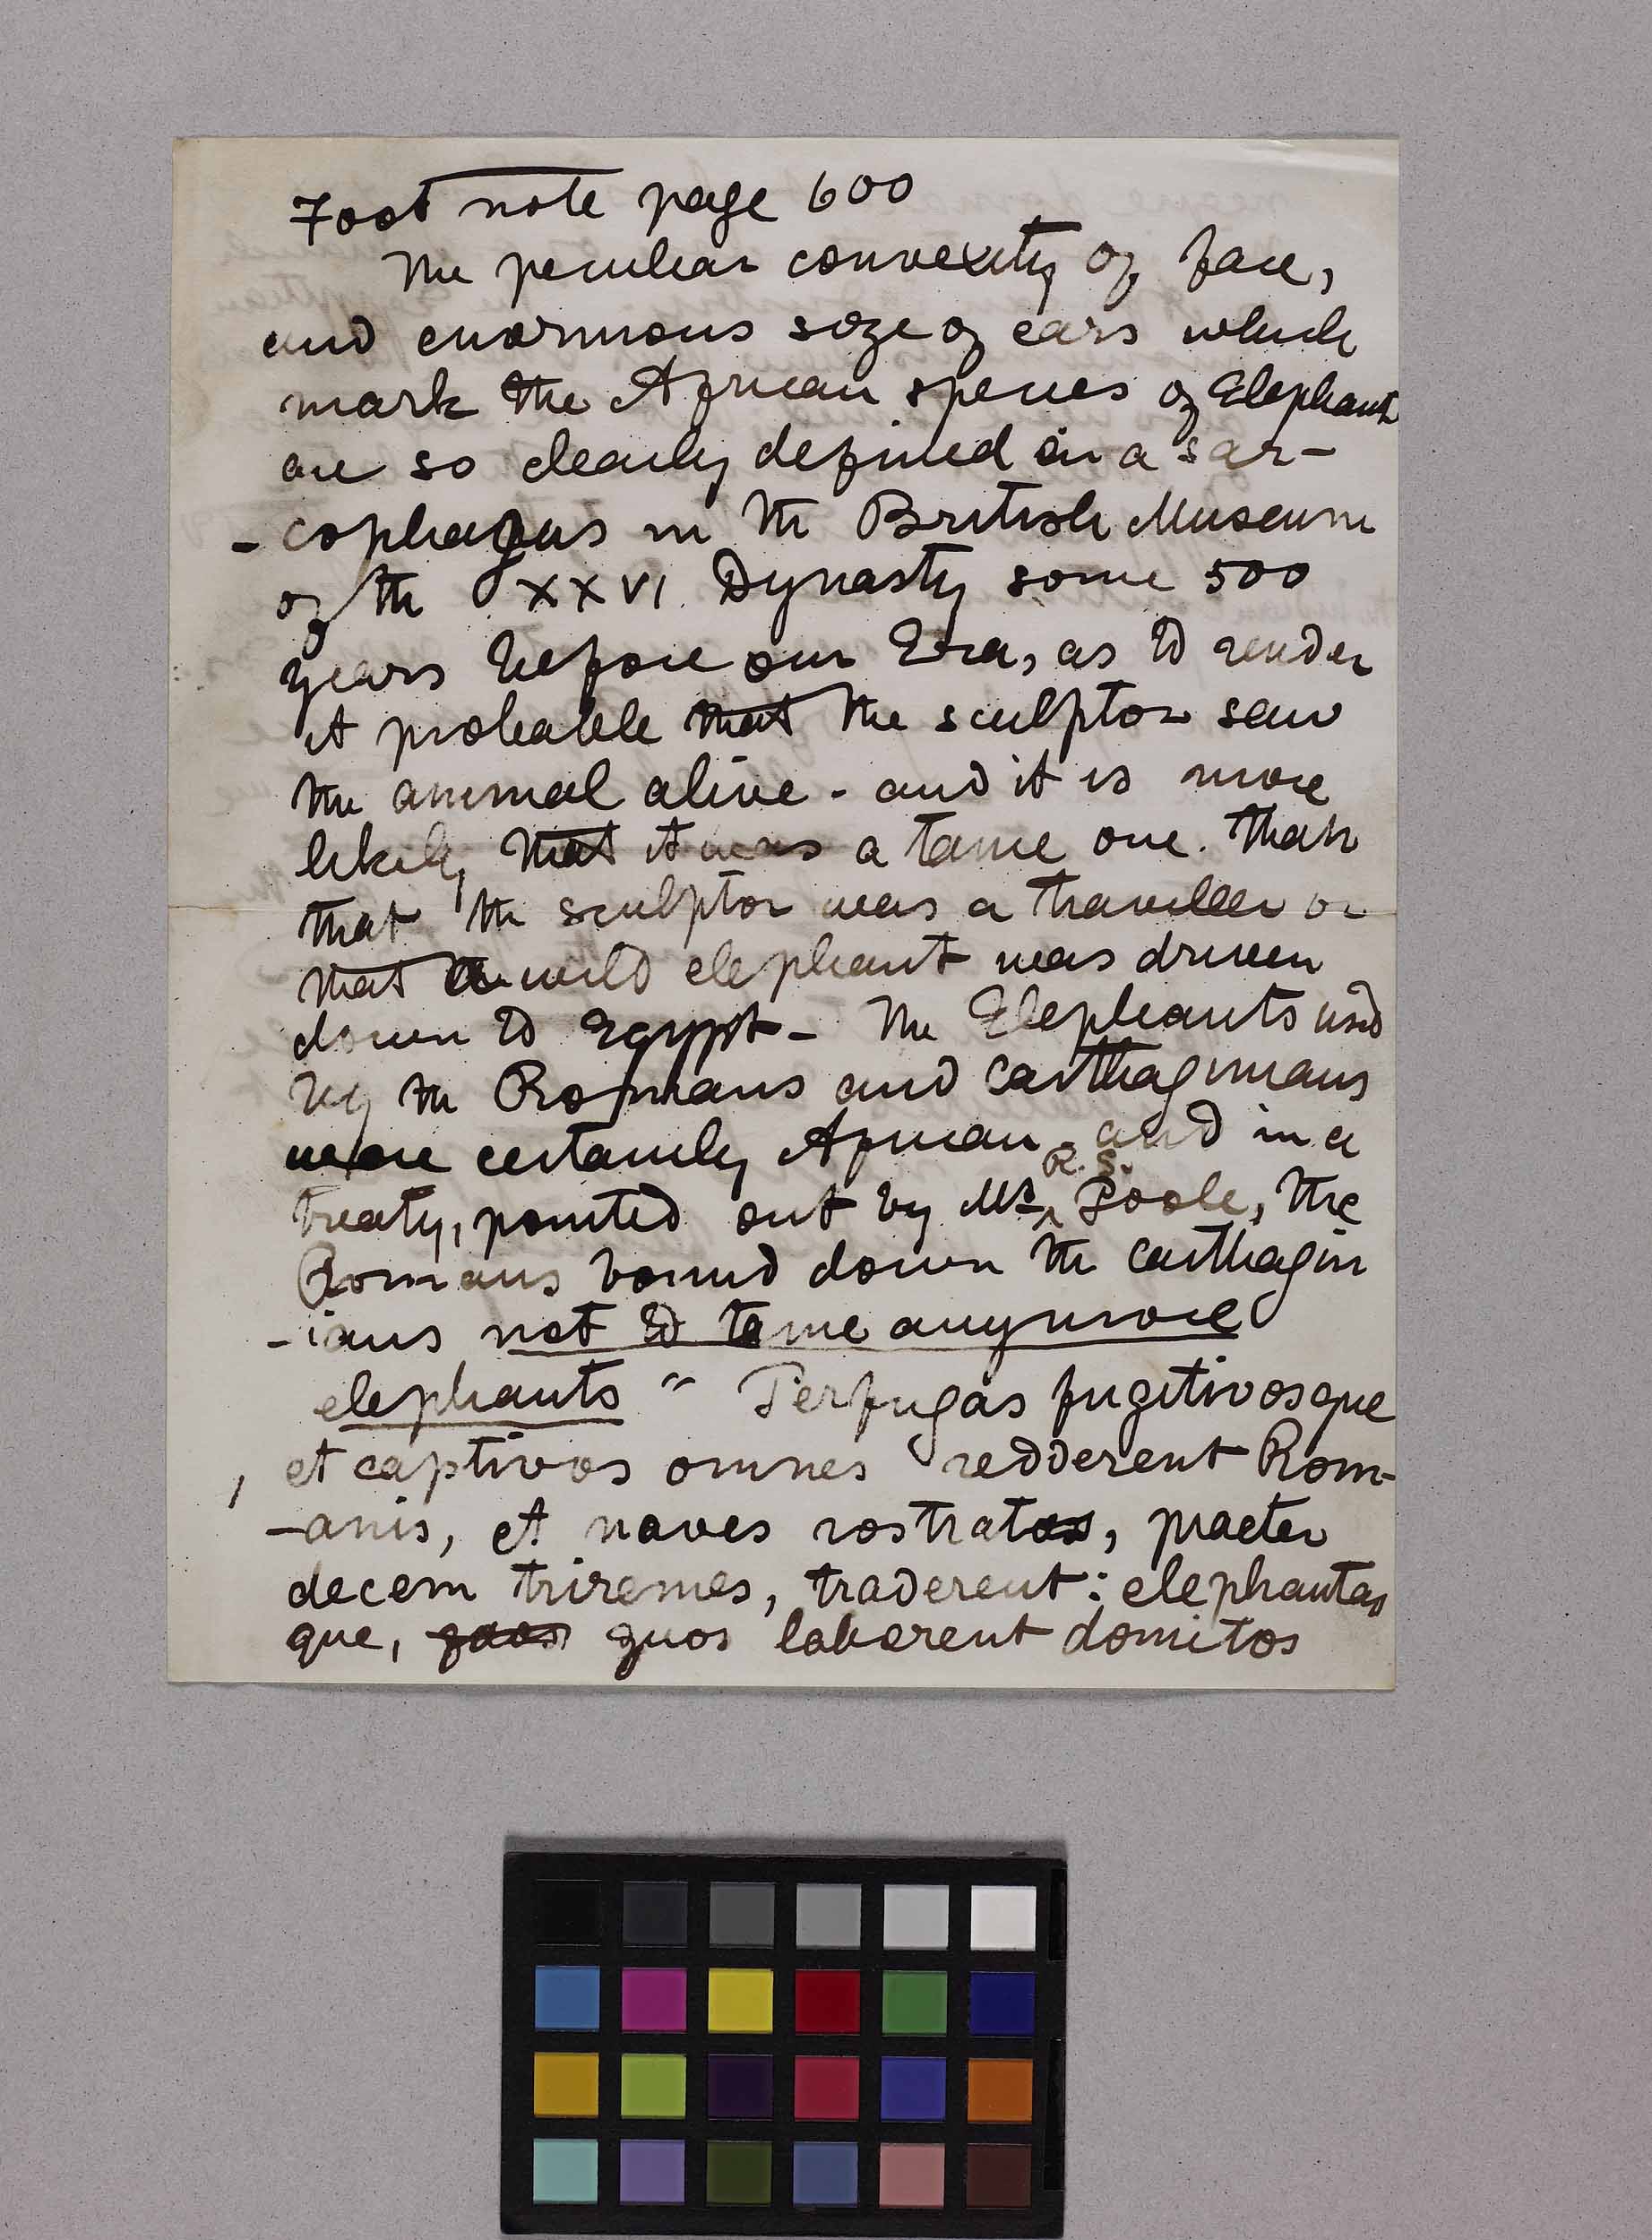 Foot note page 600
The peculiar convexity of face,
and enormous size of ears which
mark the African species of Elephant
are so clearly defined in a sar-
-cophagus in the British Museum
of the XXVI. Dynasty some 500
years before our Era, as to render
it probable that the sculptor saw
the animal alive - and it is more
likely that it was a tame one. than
that the sculptor was a traveller or
that a wild elephant was driven
down to Egypt - The Elephants used
by the Romans and Carthaginians
were certainly African - and in a
treaty, pointed out by Mr R.S. Poole, the
Romans bound down the Carthagin
-ians not to tame anymore
elephants " Perfugas fugitivosque
et captivos omnes redderent Rom-
-anis, et naves rostratas, praeter
decem triremes, traderent: elephantas
que, quos quos haberent domitos